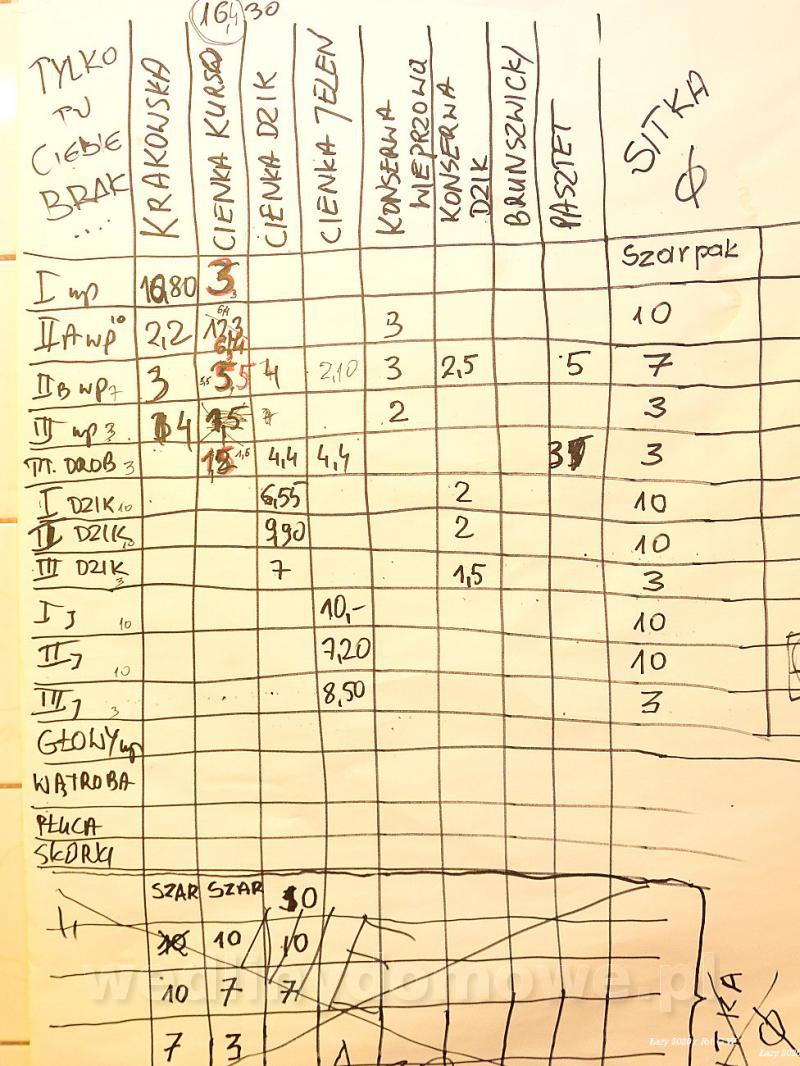 16,4 30
TYLKO TU CIEBIE BRAK .....
KRAKOWSKA
CIENKA KURSO
CIENKA DZIK
CIENKA JELEN
KONSERWA WIEPRZOWA
KONSERWA DZIK
BRUNSZWICK
PASZTET
SITKA Ø
Szarpak
I wp 10,80 3 10
II A wp 10 2,2 3
II B wp 7 3 5 4 2,10 3 2,5 5 7
III wp 3 4 2 3
M. DROB 3 4,4 4,4 3
I DZIK 10 6,55 2 10
II DZIK 10 9,90 2 10
III DZIK 3 7 1,5 3
I J 10 10,- 10
II J 10 7,20 10
III J 3 8,50 3
GŁOWY wp
WĄTROBA
PŁUCA
SKÓRKI
SZAR SZAR 10
10 10 10
10 7 7
7 3
SITKA Ø
wedlinydomowe.pl
Łazy 2020 r.